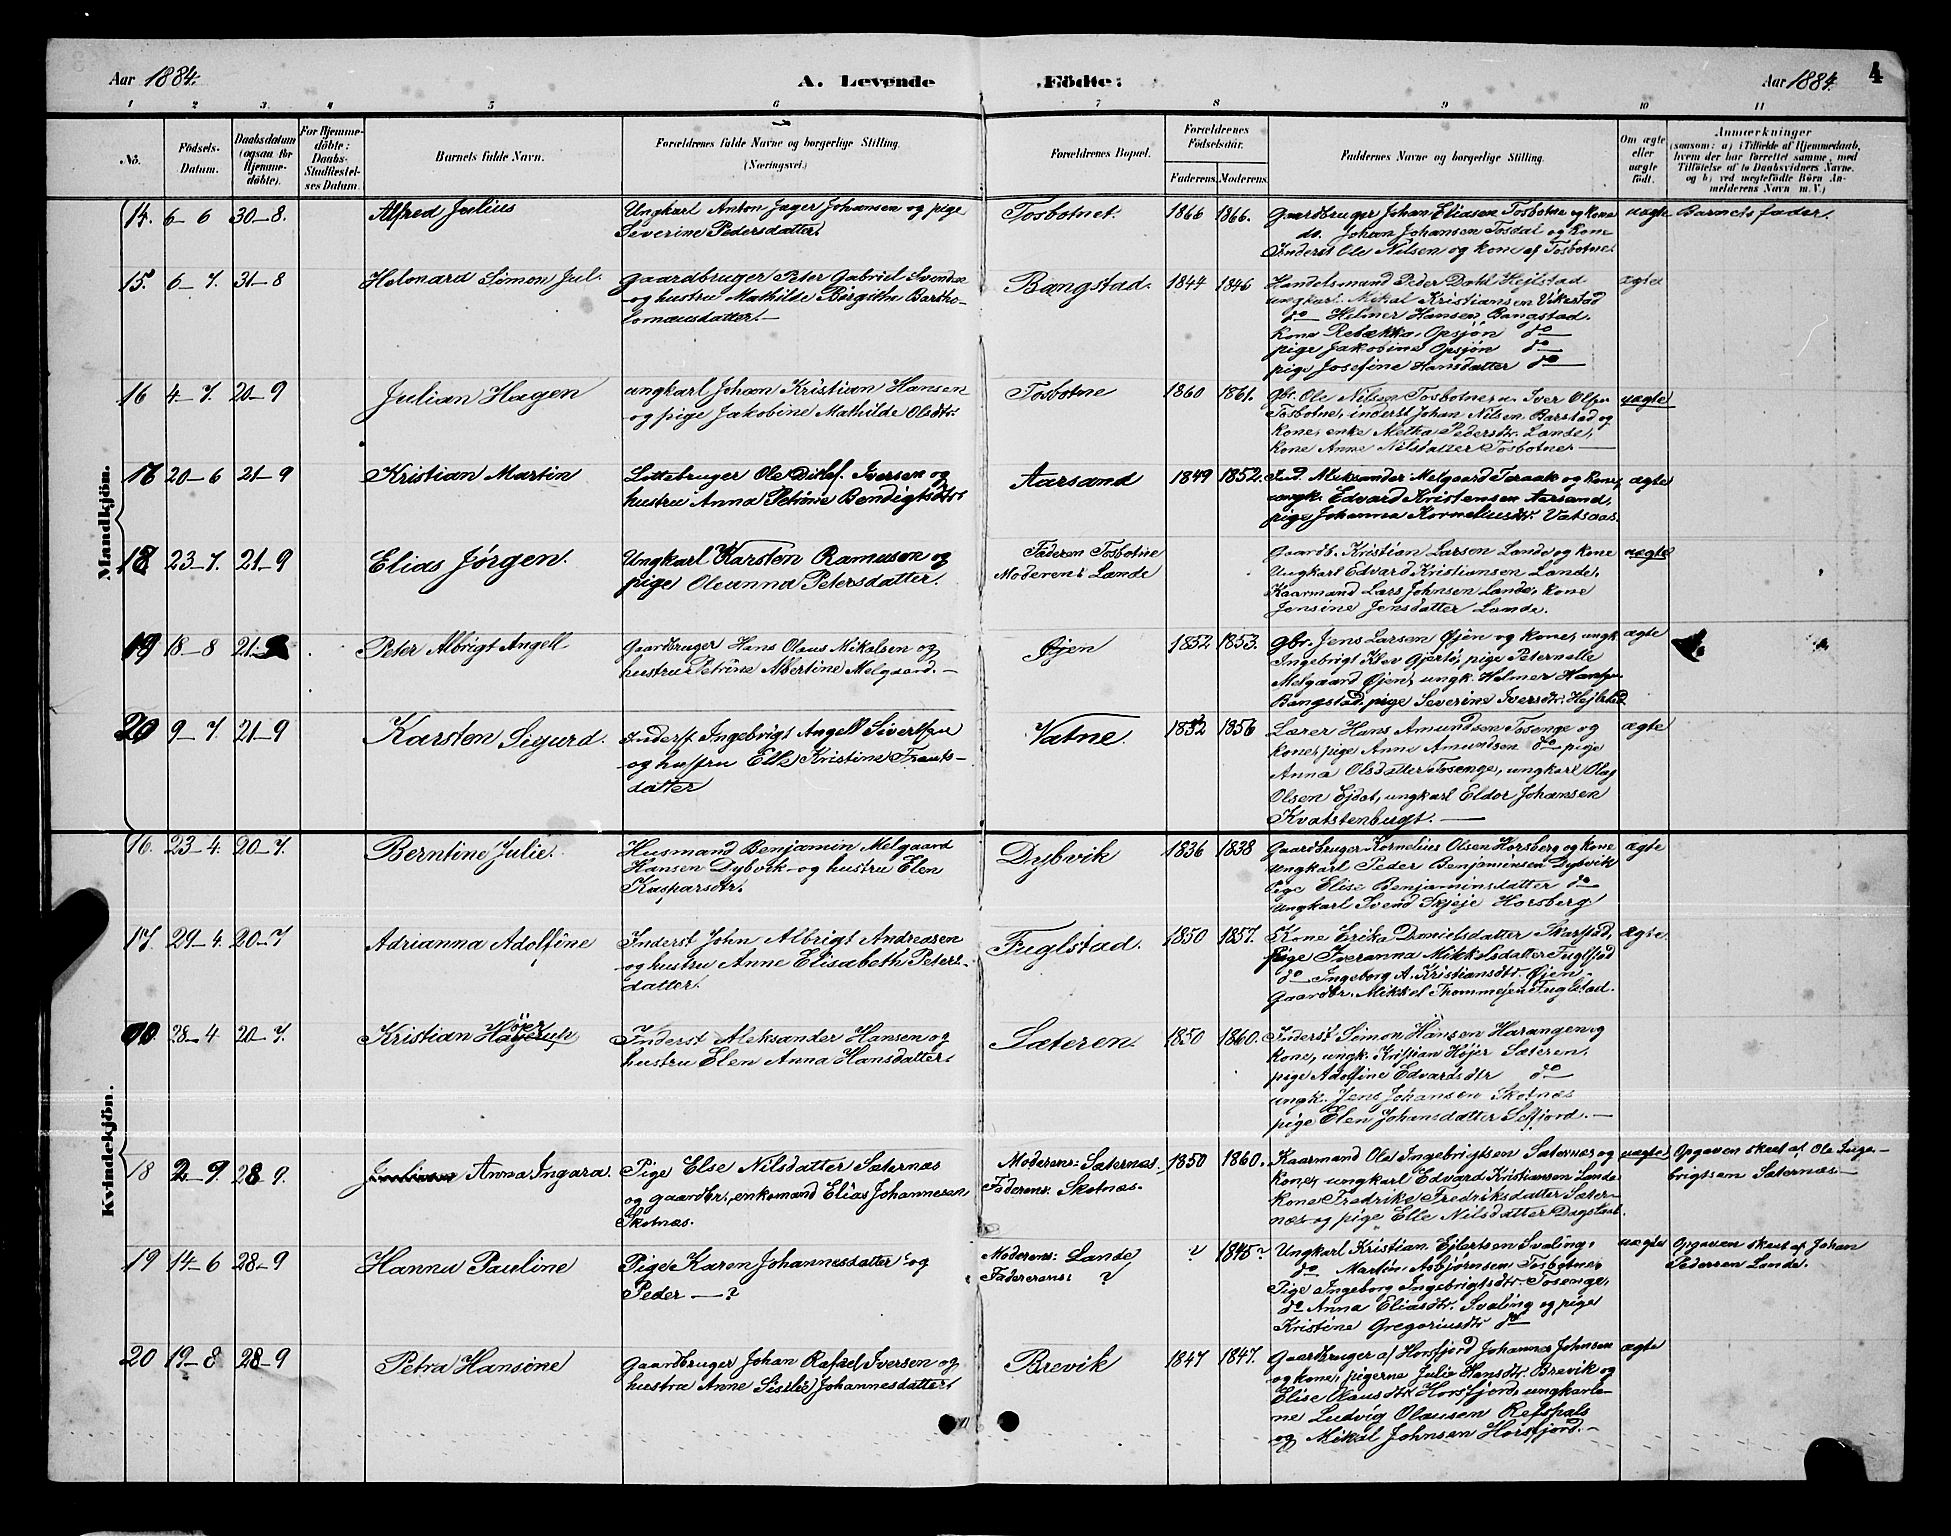 Aar 1884. A. Levende Födte: Aar 1884. 4
1 2 3. 4 5 6 7 8 9 10 11
No. Födsels-Datum. Daabsdatum (ogsaa for Hjemme-döbte). For Hjemme-döbte: Daabs-Stadfæstel-ses Datum. Barnets fulde Navn. Forældrenes fulde Navne og borgerlige Stilling. (Næringsvei.) Forældrenes Bopæl. Forældrenes Födselsaar. Faderens. Moderens. Faddernes Navne og borgerlige Stilling. Om ægte eller uægte födt. Anmærkninger
(saasom: a) i Tilfælde af Hjemmedaab,
hvem der har forrettet samme, med
Tilföielse af to Daabsvidners Navne.
og b) ved uægtefödte Börn An-
melderens Navn m. V.)
Mandkjön.
14. 6–6 30–8. Alfred Julius Ungkarl Anton Jager Johansen og pige Tosbotnet. 1866 1866. Gaardbruger Johan Eliasen Tosbotne og kone uægte Barnets fader.
Severine Pedersdatter. do. Johan Johansen Tosdal og kone
Inderst Ole Nilsen og kone af Tosbotne.
15. 6–7. 31–8 Helonard Simon Jul. gaardbruger Peter Gabriel Svendse Bangstad. 1844 1846 Handelsmand Peder Dahl Hejlstad ægte
og hustru Mathilde Birgithe Bartho- ungkarl Mikal Kristiansen Vikestad
lomæusdatter.— do Helmer Hansen Bangstad.
kone Rebækka Opsjøn do
pige Jakobine Opsjøn do
pige Josefine Hansdatter do
16 4–7. 20–9 Julian Hagen ungkarl Johan Kristian Hansen Tosbotne 1860 1861. Gbr. Ole Nilsen Tosbotne, Iver Olsen uægte
og pige Jakobine Mathilde Olsdtr. Tosbotne, inderst Johan Nilsen Barstad og
kone, enke Metha Pedersdtr. Lande,
kone Anne Nilsdatter Tosbotne.—
17 20–6 21–9 Kristian Martin Lottebruger Ole Ditlef Iversen og Aarsand 1849 1852. Ind. Aleksander Melgaard Teraak og kone, ægte
hustru Anna Petrine Bendigtsdtr. ungk. Edvard Kristensen Aarsand,
pige Johanna Korneliusdtr. Vatsaas.
18 23–7. 21–9 Elias Jørgen. Ungkarl Karsten Ramuson og Faderen Tosbotne Gaardb. Kristian Larsen Lande og kone uægte
pige Oleanna Petersdatter. Moderen: Lande Ungkarl Edvard Kristiansen Lande,
Kaarmand Lars Johnsen Lande, kone
Jensine Jensdatter Lande.
19 18–8 21– Peter Albrigt Angell Gaardbruger Hans Olaus Mikalsen og Øjen 1852 1853. Gbr. Jens Larsen Øjen og kone, ungk. ægte
hustru Petrine Albertine Melgaard.— Ingebrigt Klev Gjertø, pige Peternelle
Melgaard Øjen, ungk. Helmer Hansen
Bangstad, pige Severine Iversdtr. Hejlstad
20 9–7 21–9 Karsten Sigurd. Inderst Ingebrigt Angell Sivertsen Vatne. 1852 1856 Lærer Hans Amundsen Tosenge og ægte
og hustru Elle Kristine Frants- kone, pige Anne Amundsen do pige
datter Anna Olsdatter Tosenge, ungkarl Olaf
Olsen Ejdet, ungkarl Eldor Johansen
Kvatstenbugt.—
Kvindekjön.
16. 23–4. 20–7. Berntine Julie. Husmand Benjamin Melgaard Dybvik 1836 1838 Gaardbruger Kornelius Olsen Horsberg og kone ægte
Hansen Dybvik og hustru Elen ungkarl Peder Benjaminsen Dybvik
Kasparsdtr. Pige Elise Benjaminsdatter do
ungkarl Svend Skjeje Horsberg.
17. 29–4. 20–7 Adrianna Adolfine Inderst John Albrigt Andreasen Fuglstad. 1850 1857. Kone Erika Danielsdatter Skarstad, Ægte.
og hustru Anne Elisabeth Peters- pige Iveranna Mikkelsdatter Fuglstad
datter. do Ingeborg A. Kristiansdtr. Øjen,
Gaardbr. Mikkel Thommesen Fuglstad.
28–4 20–7. Kristian Højer Inderst Aleksander Hansen og Sæteren. 1850 1860. Inderst Simon Hansen Harangen og
hustru Elen Anna Hansdatter. kone, ungk. Kristian Højer Sæteren,
pige Adolfine Edvardsdtr do
ungk. Jens Johansen Skotnæs
pige Elen Johansdatter Sefjord.—
18 2–9. 28–9. Anna Ingara. Pige Else Nilsdatter Sæternæs Moderens: Sæternæs. 1850 1860. Kaarmand Ole Ingebrigtsen Sæternæs og uægte Opgaven skeet af Ole Inge-
og gaardbr., enkemand Elias Johannesen Faderens: Skotnæs. kone, ungkarl Edvard Kristiansen Lande brigtsen Sæternæs—
Skotnæs. kone Fredrike Fredriksdatter Sæter-
næs og pige Elle Nilsdatter Dagslaat.
19 14–6 28–9 Hanna Pauline Pige Karen Johannesdatter og Moderens: Lande ? 1845? Ungkarl Kristian Ejlertsen Svaling, uægte Opgaven skeet af Johan
Peder —? Fadererens: ? do Martin Asbjørnsen Tosbotne, Pedersen Lande.
Pige Ingeborg Ingebrigtsdtr. Tosenge,
do Anna Eliasdtr. Svaling og pige
Kristine Gregoriusdtr do
20 19–8 28–9 Petra Hansine Gaardbruger Johan Rafael Iversen og Brevik 1847 1847. Gaardbruger af Horsfjord Johannes Johnsen ægte
hustru Anne Sisilie Johannesdatter. og kone, pigerne Julie Hansdtr. Brevik og
Elise Olausdtr. Horsfjord, ungkarle-
ne Ludvig Olausen Refspals
og Mikal Johnsen Horsfjord.—